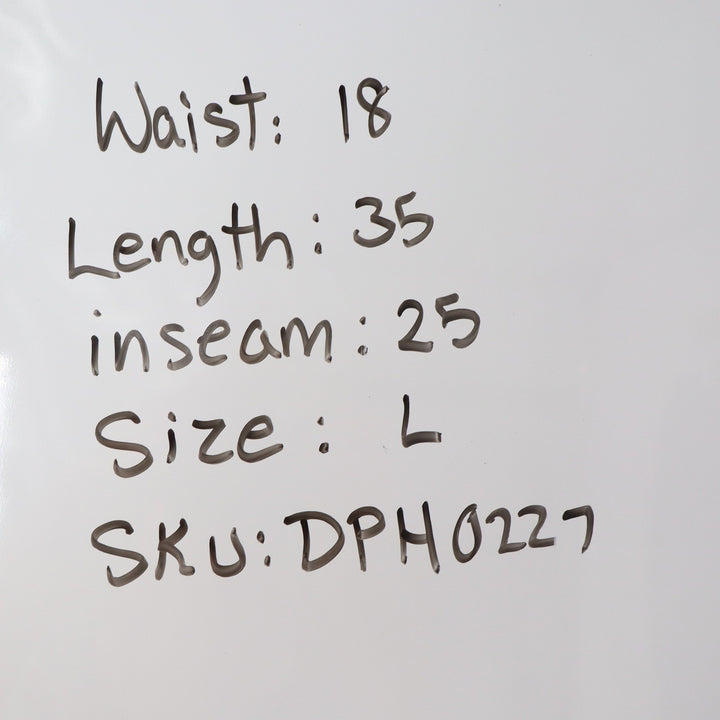 Waist: 18
Length: 35
inseam: 25
Size: L
SKU: DPH0227